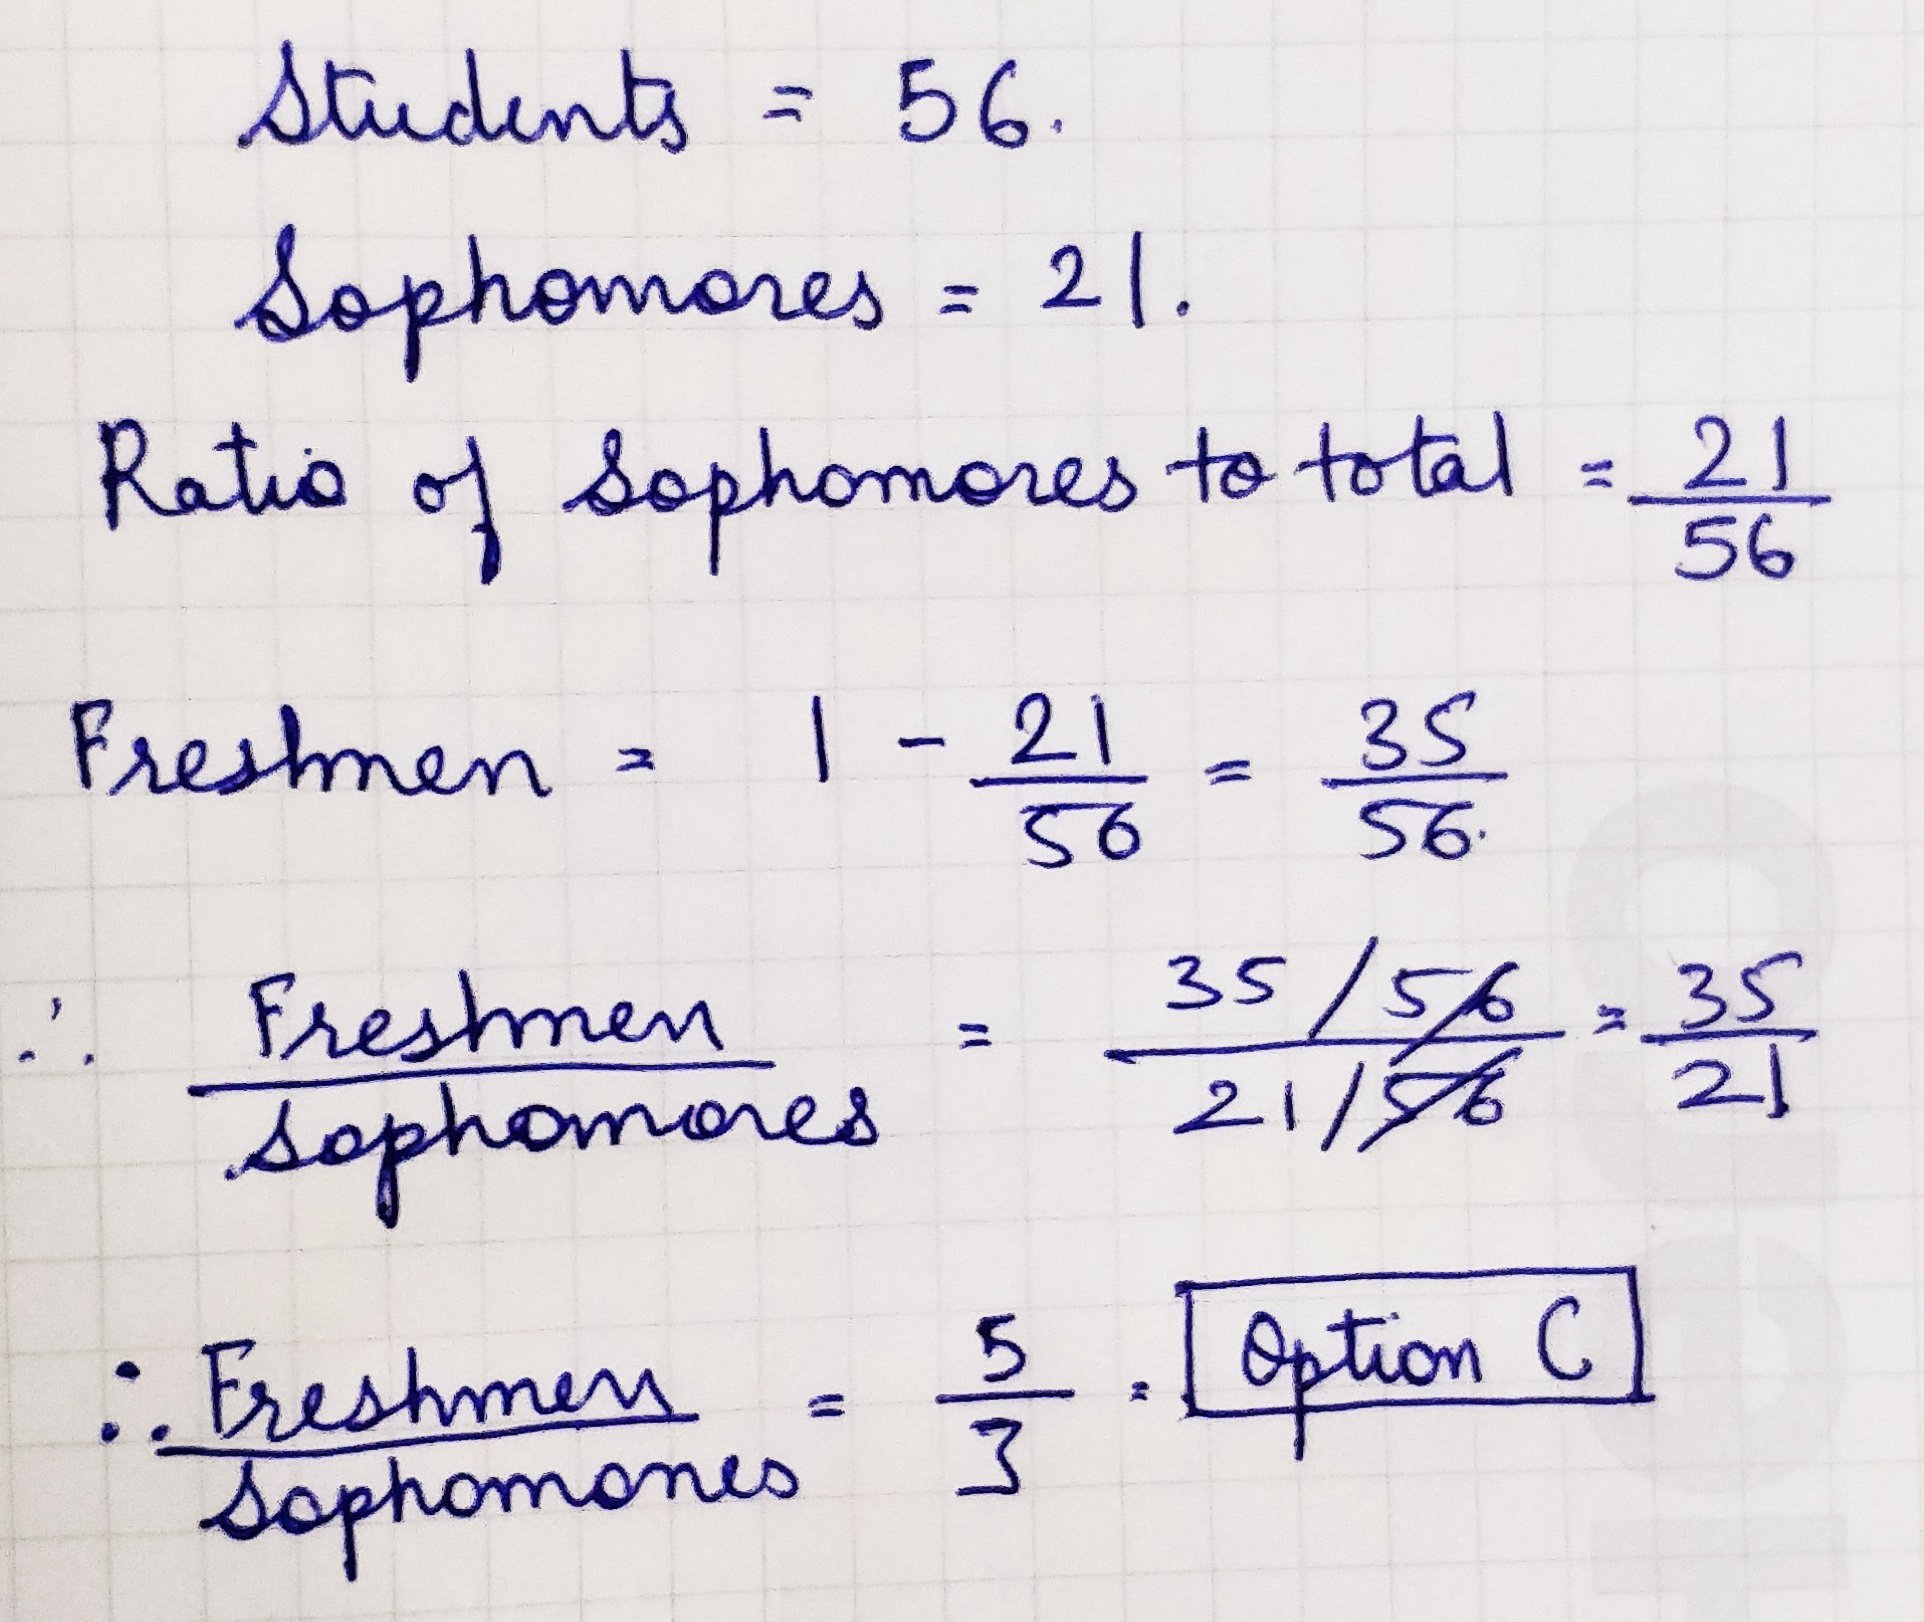 Students = 56.
Sophomores = 21.
Ratio of Sophomores to total = 21/56
Freshmen = 1 - 21/56 = 35/56.
∴ Freshmen/Sophomores = (35/56)/(21/56) = 35/21
∴ Freshmen/Sophomores = 5/3 = Option C